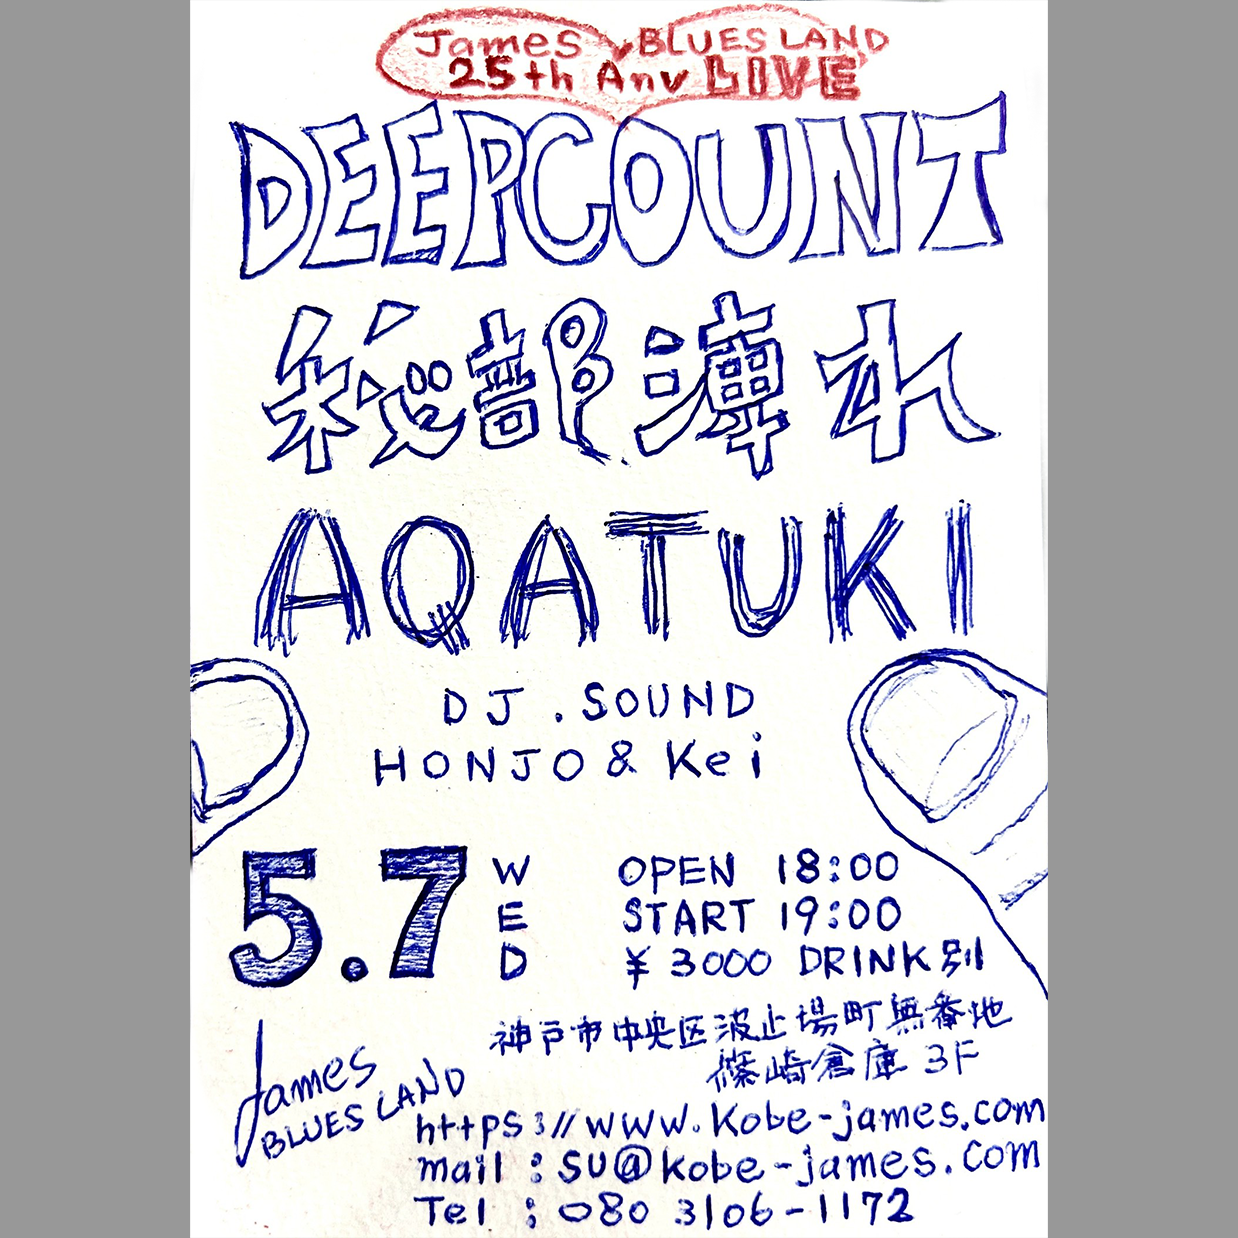 James ♥ BLUES LAND
25th Anv LIVE
DEEPCOUNT
AQATUKI
DJ . SOUND
HONJO & Kei
5.7 WED
OPEN 18:00
START 19:00
¥3000 DRINK別
神戸市中央区波止場町無番地
篠崎倉庫 3F
James
BLUES LAND
https://www.kobe-james.com
mail : su@kobe-james.com
Tel : 080 3106-1172